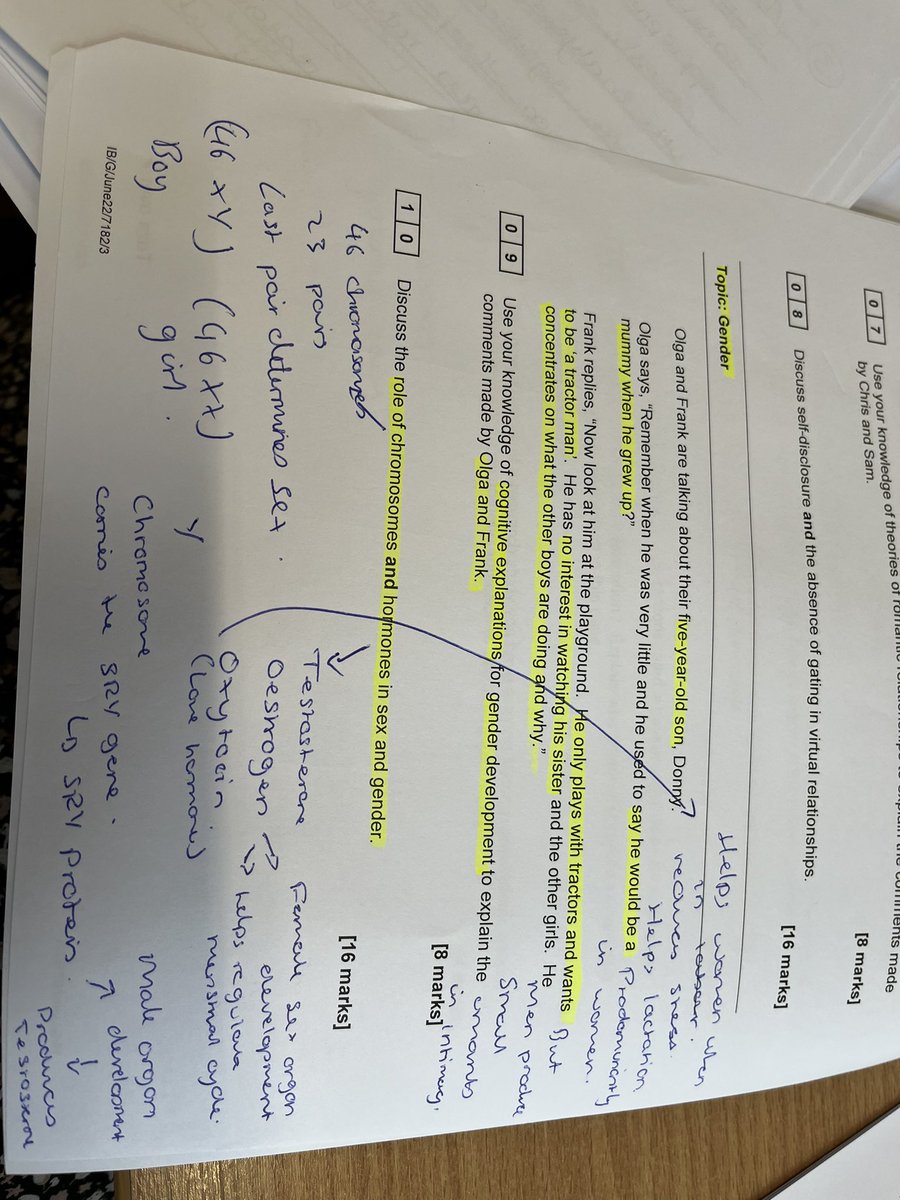 0 7 Use your knowledge of theories of romantic relationships to explain the comments made
by Chris and Sam.
[8 marks]
0 8 Discuss self-disclosure and the absence of gating in virtual relationships.
[16 marks]
Topic: Gender
Olga and Frank are talking about their five-year-old son, Donny.
Olga says, “Remember when he was very little and he used to say he would be a
mummy when he grew up?”
Frank replies, “Now look at him at the playground. He only plays with tractors and wants
to be ‘a tractor man’. He has no interest in watching his sister and the other girls. He
concentrates on what the other boys are doing and why.”
0 9 Use your knowledge of cognitive explanations for gender development to explain the
comments made by Olga and Frank.
[8 marks]
1 0 Discuss the role of chromosomes and hormones in sex and gender.
[16 marks]
Helps women when
in labour.
reduces stress.
Helps lactation
Predominently
in women.
But
men produce
small
amounts
in intimacy.
46 chromosomes
23 pairs
Last pair determines sex.
(46 XY) (46 XX)
Boy girl.
Testosterone
Oestrogen → Female sex organ
development
↳ helps regulate
menstrual cycle.
Oxytocin
(love hormone)
Y
Chromosome
carries the SRY gene.
↳ SRY protein.
Male organ
↑ development
↓
Produces
Testosterone
IB/G/June22/7182/3